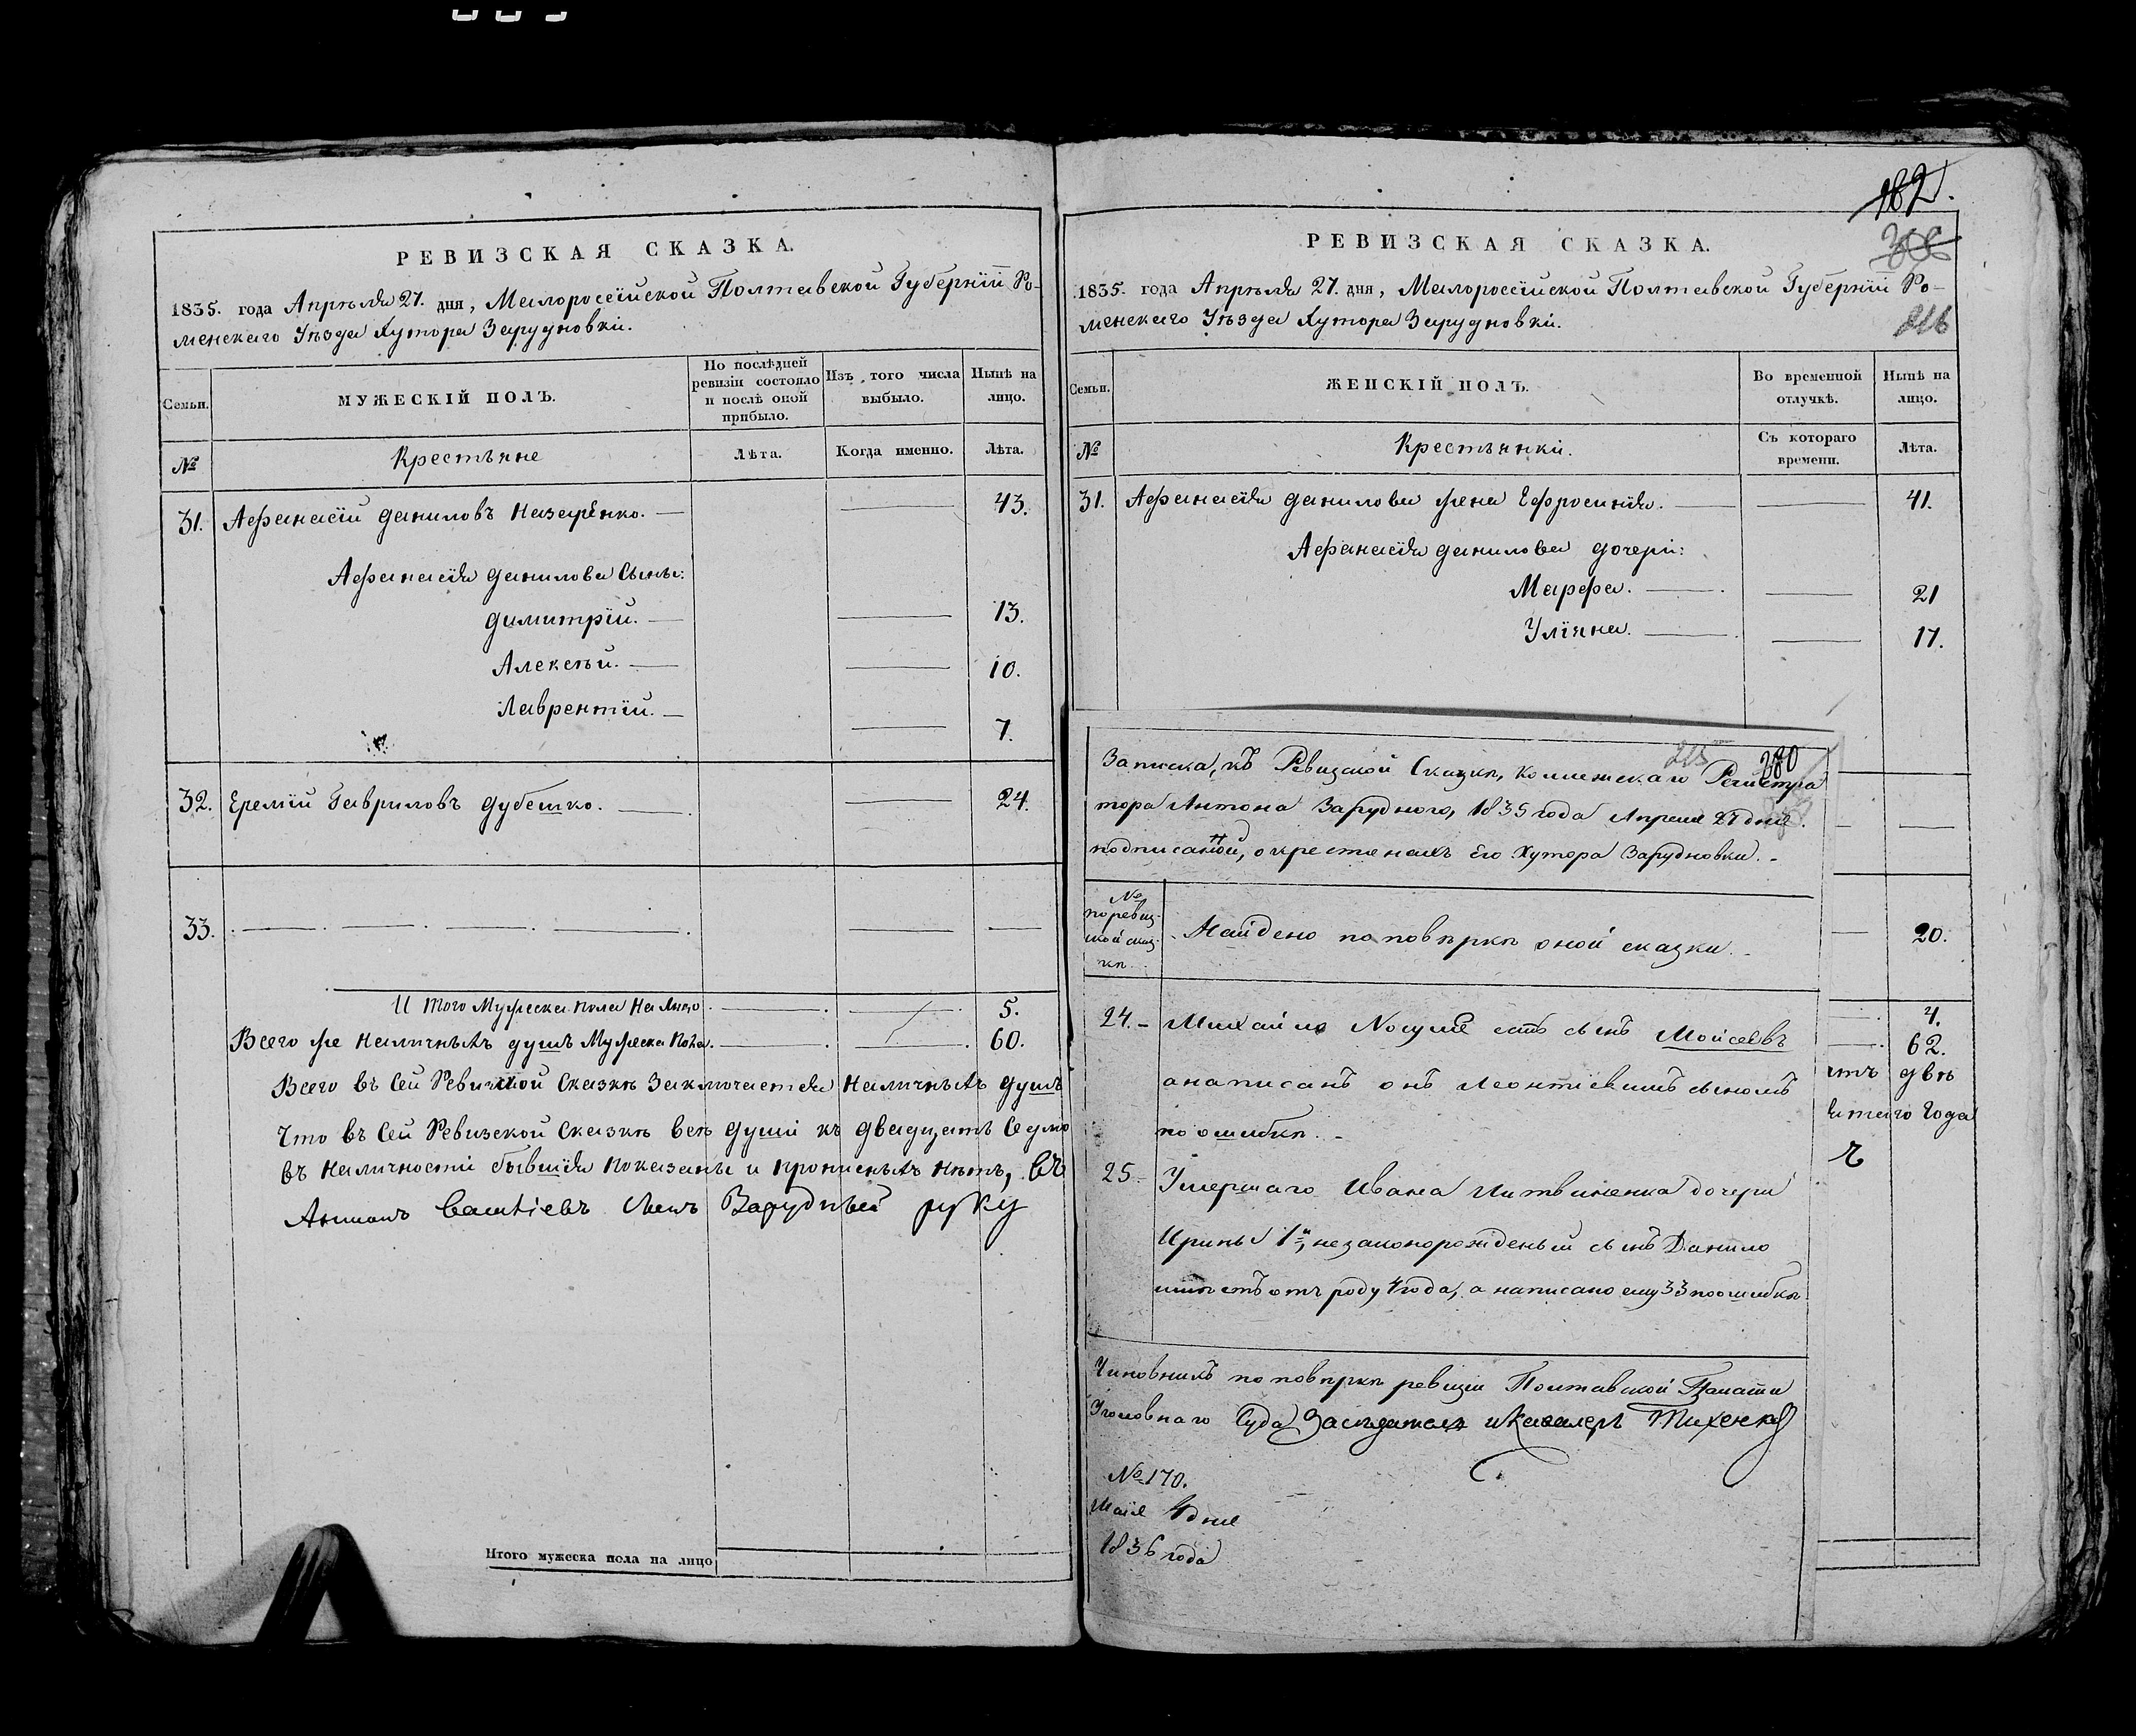 РЕВИЗСКАЯ СКАЗКА.
1835. года Апрѣля 27. дня, Малороссійской Полтавской Губерніи Ро-
менскаго Уѣзда Хутора Зарудновки.
Семьи. МУЖЕСКІЙ ПОЛЪ. По послѣдней ревизіи состояло и послѣ оной прибыло. Изъ того числа выбыло. Нынѣ на лицо.
№ Крестьяне Лѣта. Когда именно. Лѣта.
31. Афанасій Даниловъ Назаренко. — — 43.
Афанасія Данилова Сыны:
Димитрій. — — 13.
Алексѣй. — — 10.
Лаврентій. — — 7.
32. Еремій Гавриловъ Дубешко. — — 24.
33. — — — — — —
И того Мужеска пола На Лицо. — — 5.
Всего же Наличныхъ душъ Мужеска Пола. — — 60.
Всего въ Сей Ревизской Сказкѣ Заключается Наличныхъ душъ
Что въ Сей Ревизской Сказкѣ всѣ души къ двадцать Седмо
въ Наличности бывшія показаны и прописныхъ нѣтъ, въ
Антонъ Сынъ Зарудный руку
Итого мужеска пола на лицо
182.
216
РЕВИЗСКАЯ СКАЗКА.
1835. года Апрѣля 27. дня, Малороссійской Полтавской Губерніи Ро-
менскаго Уѣзда Хутора Зарудновки.
Семьи. ЖЕНСКІЙ ПОЛЪ. Во временной отлучкѣ. Нынѣ на лицо.
№ Крестьянки. Съ котораго времени. Лѣта.
31. Афанасія Данилова жена Ефросинія. — — 41.
Афанасія Данилова дочери:
Марфа. — — 21
Уліяна. — — 17.
— —
— 20.
— 4.
— 62.
двѣ
года
215 280
Записка, къ Ревизской Сказкѣ, Коллежскаго Регистра
тора Антона Заруднаго, 1835 года Апреля 27 дня
подписанной, о крестянахъ Его Хутора Зарудновки. -
№ по ревиз-
ской сказ-
кѣ. Найдено по повѣркѣ оной сказки. -
24. - Михайло есть сынъ Мойсеевъ
а написанъ онъ Леонтіевимъ сыномъ
по ошибкѣ. -
25. Умершаго Ивана Литвиненка дочери
Ирины 1й, незаконорожденый сынъ Данило
имѣетъ отъ роду 4 года, а написано ему 33 по ошибкѣ
Чиновникъ по повѣркѣ ревизіи Полтавской Палати
Уголовнаго Суда Засѣдатель и Кавалеръ Тихенко
№ 170.
Мая 4 дня
1836 года